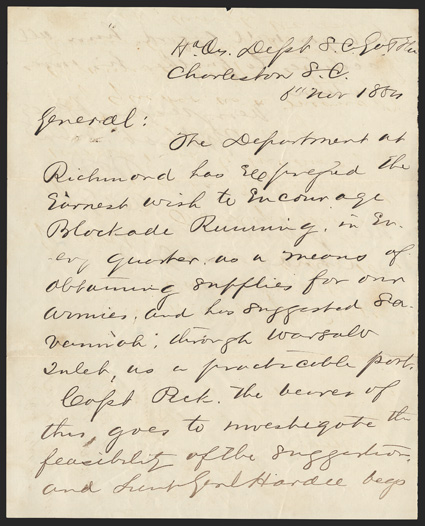 Hd Qrs. Dept S.C. Ga & Fla
Charleston S.C.
8" Nov 1864
General:
The Department at
Richmond has Expressed the
Earnest wish to Encourage
Blockade Running, in Ev-
ery quarter, as a means of
obtaining supplies for our
armies, and has suggested Sa-
vannah; through Warsaw
Inlet, as a practicable port.
Capt. the bearer of
this, goes to investigate the
feasibility of the suggestion,
and Lieut Genl Hardee begs